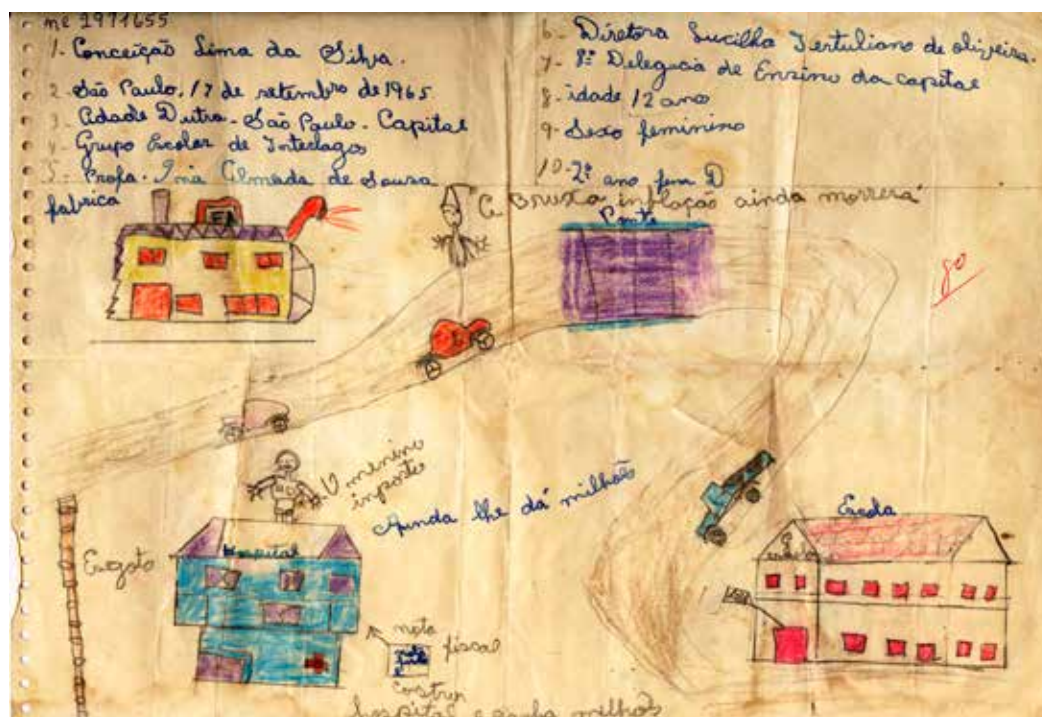 nº 2971655
1- Conceição Lima da Silva.
2- São Paulo, 17 de setembro de 1965
3- Cidade Dutra - São Paulo - Capital
4- Grupo Escolar de Interlagos
5- Profa. Almeida de Souza
6- Diretora Lucilha Tertuliano de oliveira.
7- 8ª Delegacia de Ensino da capital
8- idade 12 ano
9- Sexo feminino
10- 2º ano fem D
fabrica
A Bruxa inflação ainda morrerá
Ponte
80
O menino
inposto
Ainda lhe dá milhão
Escola
Hospital
Esgoto
nota
fiscal
hospital e ganha milhões